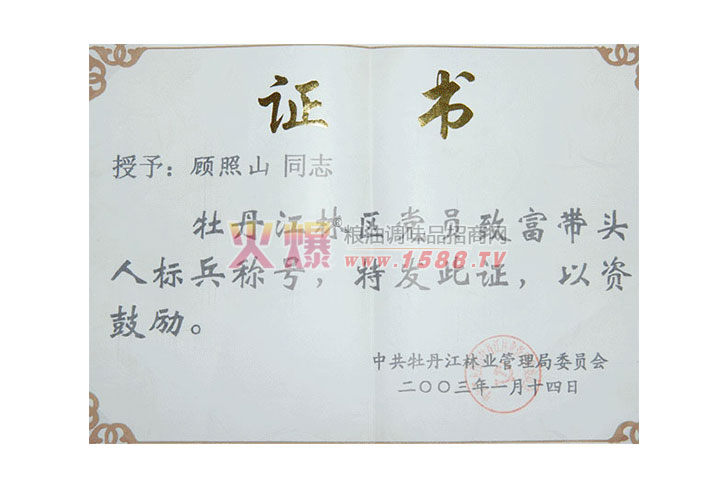 证 书
授予：顾照山 同志
牡丹江林区党员致富带头
人标兵称号，特发此证，以资
鼓励。
火爆®粮油调味品招商网
www.1588.TV
中共牡丹江林业管理局委员会
二〇〇三年一月十四日